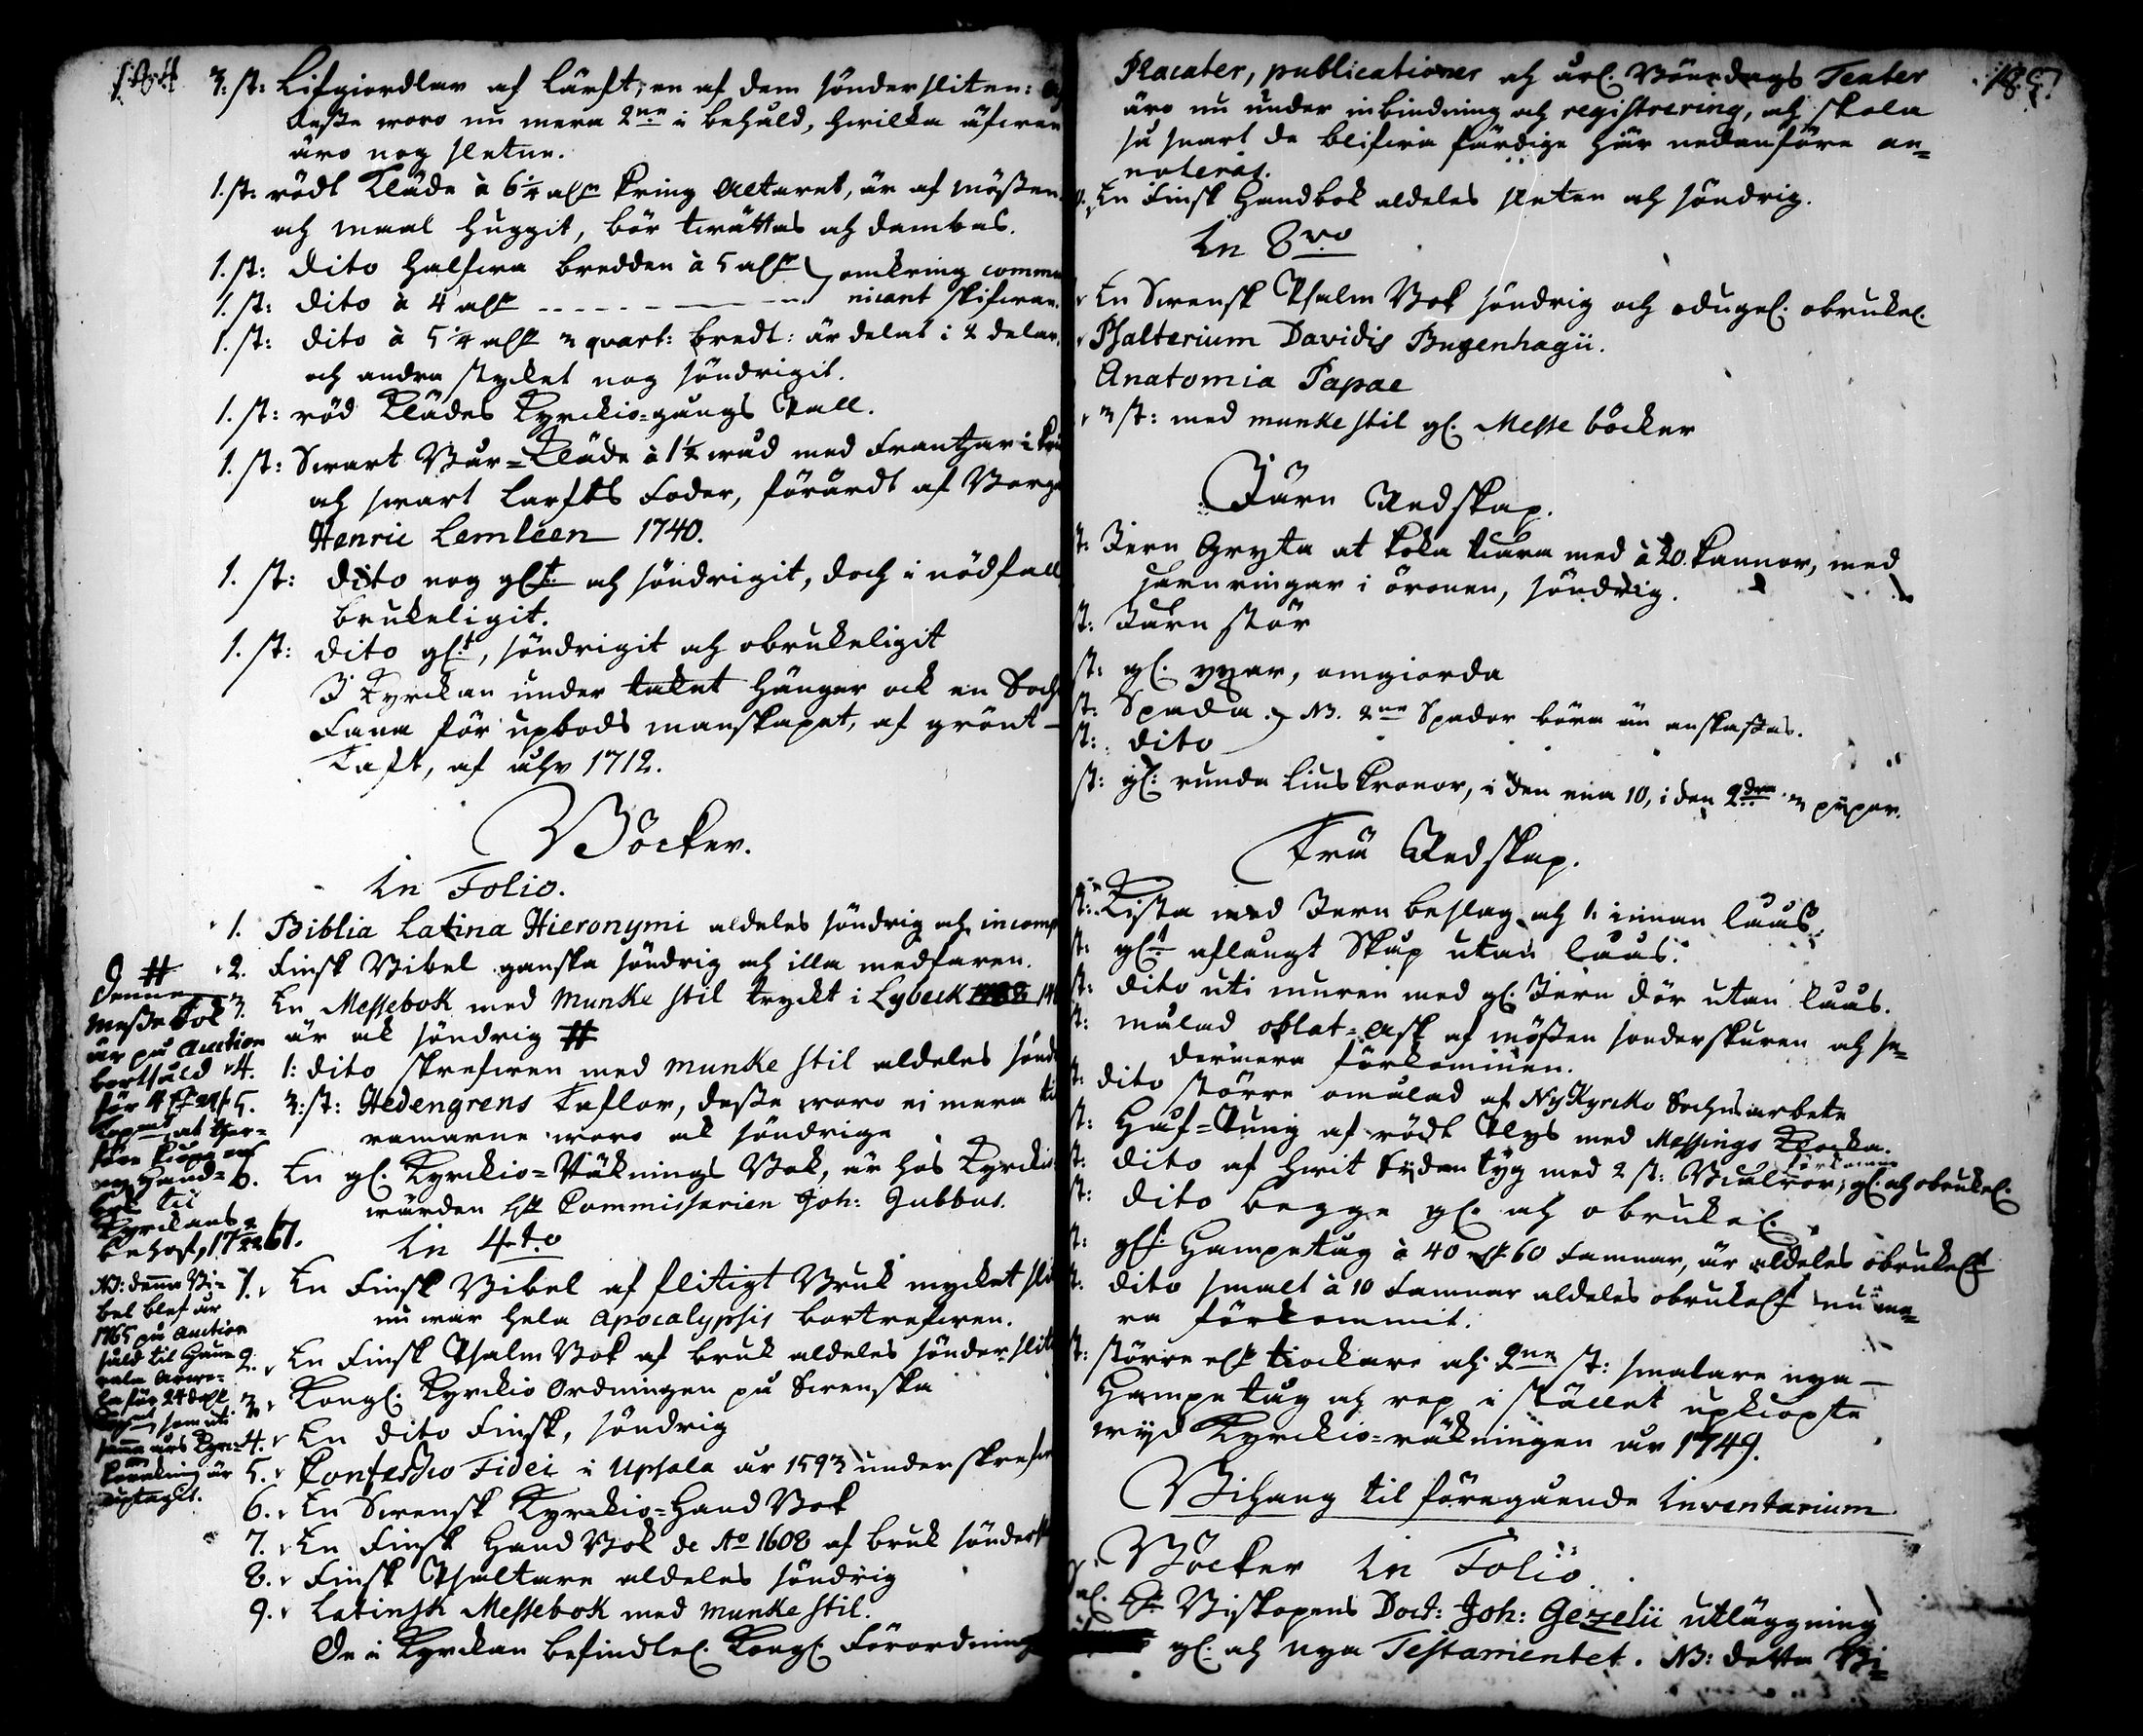 3: st: Lifgiordlar af Lärft, en af dem sönder sliten:
desse woro nu mera 2ne i behåld, hwilka äfwen
äro nog sletne.
1. st: rödt Kläde à 6 1/4 aln kring Altaret, är af mössen
och maal huggit, bör twättas och dambas.
1. st: dito halfwa bredden à 5 aln } omkring commu
1. st: dito à 4 aln - - - - - - nicant skifwan.
1. st: dito à 5 1/4 aln 3 quart: bredt: är delat i 2 delar,
och andra stycket nog söndrigit.
1. st: röd Klädes Kyrckio-gångs Pall.
1. st: Swart Bår-Kläde à 1 1/2 wåd med Frantzar i
och swart Larfts Foder, förärdt af
Henric Lemleen 1740.
1. st: dito nog glt och söndrigit, doch i nödfall
brukeligit.
1. st: dito glt, söndrigit och obrukeligit
I Kyrckan under taket hänger ock en Soch
Fana för upbods manskapet, af grönt
Taft, af åhr 1712.
Böcker.
In Folio.
1. Biblia Latina Hieronymi aldeles söndrig och incomp
2. Finsk Bibel ganska söndrig och illa medfaren.
3. En Messebok med Munke stil tryckt i Lybeck
är ok söndrig #
4. 1: dito skrefwen med munke stil aldeles sönd
5. 3: st: Hedengrens Taflor, desse woro ei mera
ramarne woro ok söndrige
6. En gl. Kyrckio-Räknings Bok, är hos Kyrckio
wärden Hr Commissarien Joh: Gubbat.
In 4to
1. En Finsk Bibel af flitigt Bruk mycket sli
nu war hela Apocalypsis bortrefwen.
2. En Finsk Psalm Bok af bruk aldeles sönder slit
3. Kongl. Kyrckio Ordningen på Swenska
4. En dito Finsk, söndrig
5. Confessio Fidei i Upsala år 1593 underskrefw
6. En Swensk Kyrckio-Hand Bok
7. En Finsk Hand Bok de Ao 1608 af bruk sönder
8. Finsk Psaltare aldeles söndrig
9. Latinsk Messebok med munke stil.
De i Kyrckan befindtel. Kongl. Förordning
#
Denne
Messe bok
är på Auction
bortsåld
för 4
at ther-
före kiöpa en
ny Hand-
bok til
Kyrckans
behof, 17 67.
NB: denna Bi-
bel blef år
1765 på Auction
såld til
för 24
som uti
samma års Kyrc-
räkning är
uptagit.
Placater, publicationer och årl. Bönedags Texter
äro nu under inbindning och registrering, och skola
så snart de blifwa färdige här nedanföre an-
noteras.
En Finsk Handbok aldeles sleten och söndrig.
In 8vo
En Swensk Psalm Bok söndrig och odugel. obrukel.
Psalterium Davidis Bugenhagii.
Anatomia Papae
3 st: med munke stil gl. Messe böcker
Järn Redskap.
st: Jern Gryta at koka tiära med à 20. kannor, med
järnringar i öronen, söndrig.
st: Järn stör
st: gl. yxar, omgiorda
st: Spada. } NB. 2ne Spador böra än anskaffas.
st: dito
st: gl: runda Lius kronor, i den ena 10, i den 2dra 3 pipor.
Trä Redskap.
st: Kista med Jern beslag och 1. innan låås.
st: glt aflångt Skåp utan låås.
st: dito uti muren med gl. Jern dör utan låås.
st: målad oblat-Ask af mössen sönderskuren och se-
dermera förkommen.
st: dito större omålad af NyKyrcko Sochns arbete
st: Håf-Pung af rödt Plys med Messings Klocka.
förkomne
st: dito af hwit Siden tyg med 2 st: Biälror, gl. och obrukel.
st: dito begge gl. och obrukel.
st: glt: Hampetåg à 40 60 Famnar, är aldeles obrukelt
st. dito smalt à 10 Famnar aldeles obrukelt nu me-
ra förkommit.
st: större och tiockare och 2ne st: smalare nya
Hampe tåg och rep i stället upkiöpte
wid Kyrckio-räkningen år 1749.
Bihang til föregående Inventarium
Böcker In Folio
Biskopens Doct: Joh: Gezelii utläggning
gl. och nya Testamentet. NB: detta Bi-